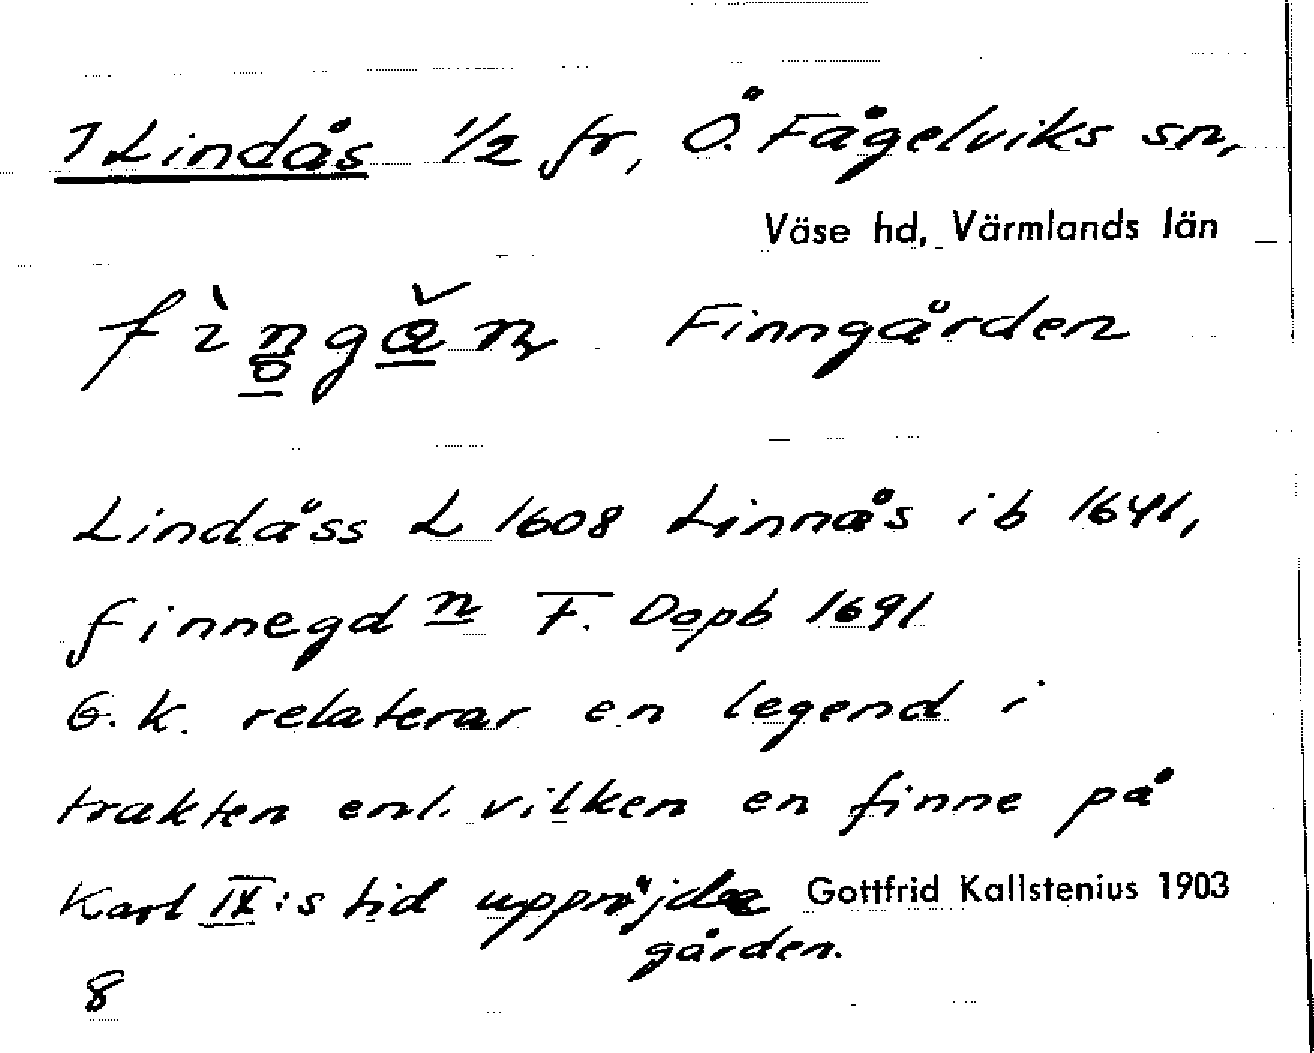 1 Lindås 1/2 fr, Ö. Fågelviks sn,
Väse hd, Värmlands län
Finngården
Lindåss L 1608 Linnås ib 1641,
finnegdn F. Dopb 1691
G. K. relaterar en legend i
trakten enl. vilken en finne på
Karl IX:s tid uppröjde
Gottfrid Kallstenius 1903
gården.
8